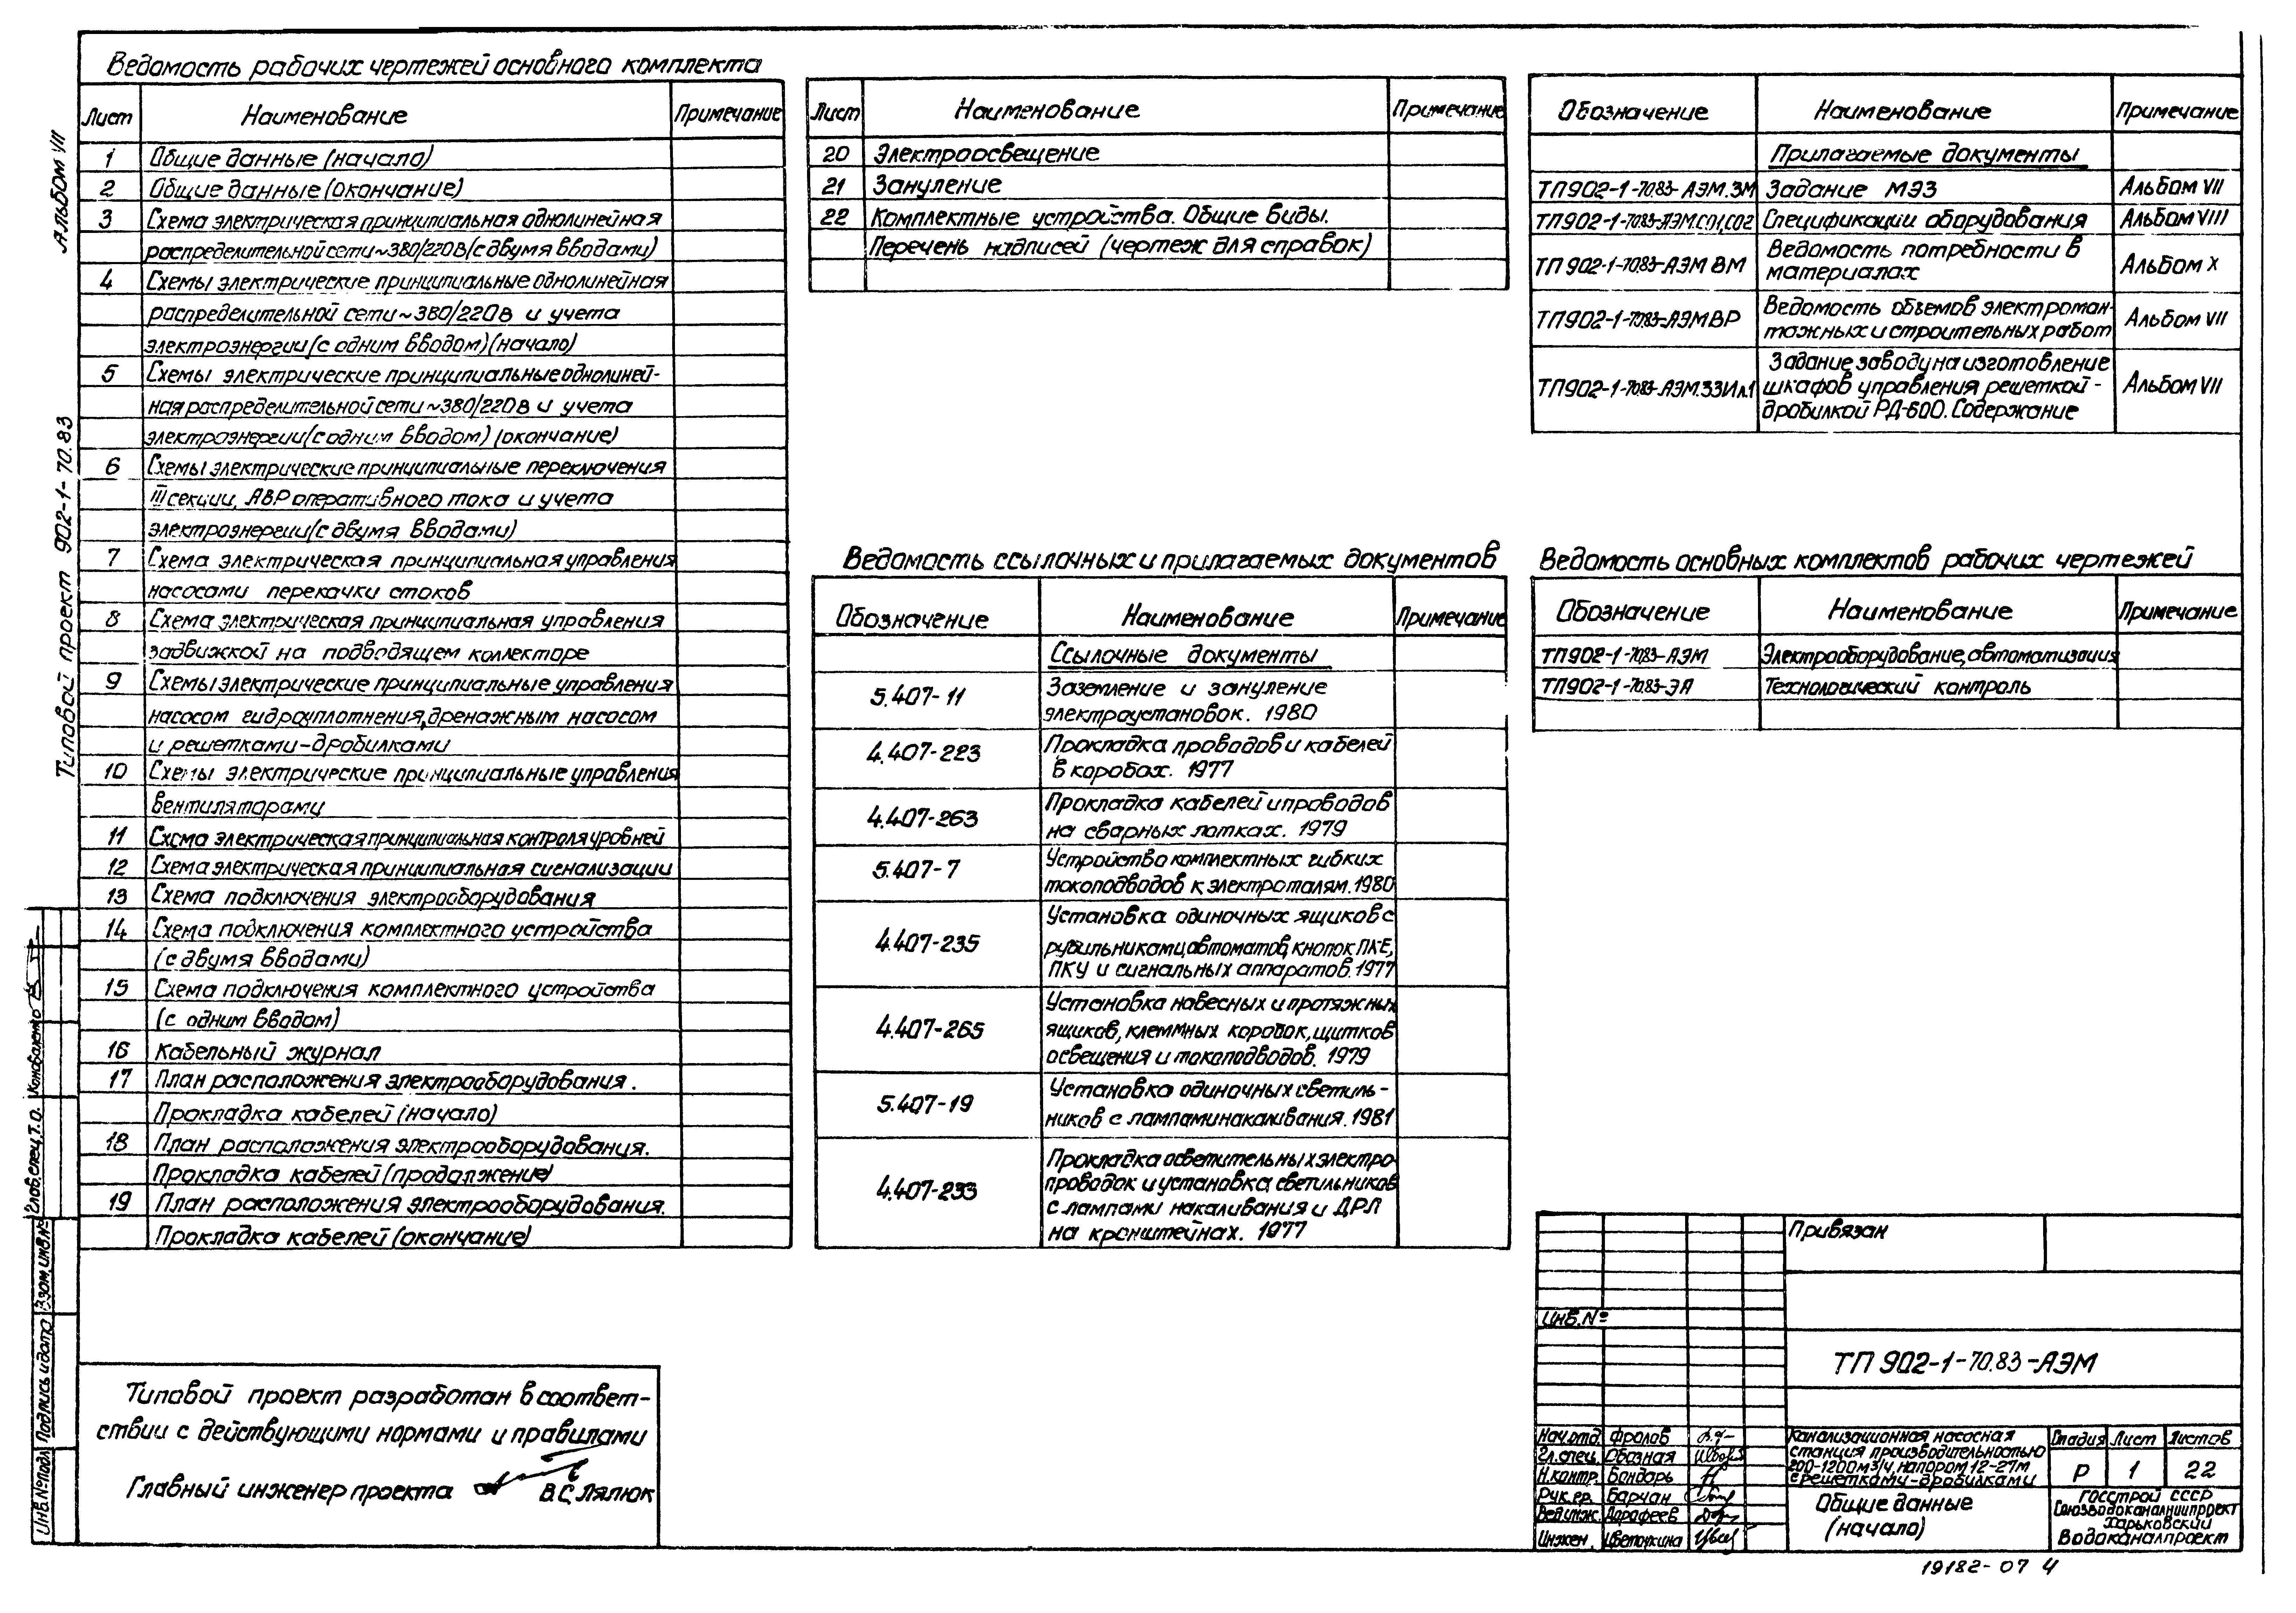 Ведомость рабочих чертежей основного комплекта
Лист Наименование Примечание
1 Общие данные (начало)
2 Общие данные (окончание)
3 Схема электрическая принципиальная однолинейная
распределительной сети ~380/220В (с двумя вводами)
4 Схемы электрические принципиальные однолинейная
распределительной сети ~380/220В и учета
электроэнергии (с одним вводом) (начало)
5 Схемы электрические принципиальные однолиней-
ная распределительной сети ~380/220В и учета
электроэнергии (с одним вводом) (окончание)
6 Схемы электрические принципиальные переключения
III секции, АВР оперативного тока и учета
электроэнергии (с двумя вводами)
7 Схема электрическая принципиальная управления
насосами перекачки стоков
8 Схема электрическая принципиальная управления
задвижкой на подводящем коллекторе
9 Схемы электрические принципиальные управления
насосом гидроуплотнения, дренажным насосом
и решетками-дробилками
10 Схемы электрические принципиальные управления
вентиляторами
11 Схема электрическая принципиальная контроля уровней
12 Схема электрическая принципиальная сигнализации
13 Схема подключения электрооборудования
14 Схема подключения комплектного устройства
(с двумя вводами)
15 Схема подключения комплектного устройства
(с одним вводом)
16 Кабельный журнал
17 План расположения электрооборудования.
Прокладка кабелей (начало)
18 План расположения электрооборудования.
Прокладка кабелей (продолжение)
19 План расположения электрооборудования.
Прокладка кабелей (окончание)
Лист Наименование Примечание
20 Электроосвещение
21 Зануление
22 Комплектные устройства. Общие виды.
Перечень надписей (чертеж для справок)
Ведомость ссылочных и прилагаемых документов
Обозначение Наименование Примечание
Ссылочные документы
5.407-11 Заземление и зануление
электроустановок. 1980
4.407-223 Прокладка проводов и кабелей
в коробах. 1977
4.407-263 Прокладка кабелей и проводов
на сварных лотках. 1979
5.407-7 Устройство комплектных гибких
токоподводов к электроталям. 1980
4.407-235 Установка одиночных ящиков с
рубильниками, автоматов, кнопок ПКЕ,
ПКУ и сигнальных аппаратов. 1977
4.407-265 Установка навесных и протяжных
ящиков, клеммных коробок, щитков
освещения и токоподводов. 1979
5.407-19 Установка одиночных светиль-
ников с лампами накаливания. 1981
4.407-233 Прокладка осветительных электро-
проводок и установка светильников
с лампами накаливания и ДРЛ
на кронштейнах. 1977
Обозначение Наименование Примечание
Прилагаемые документы
ТП902-1-70.83-АЭМ.ЗМ Задание МЭЗ Альбом VII
ТП902-1-70.83-АЭМ.СО1,СО2 Спецификации оборудования Альбом VIII
ТП 902-1-70.83-АЭМ ВМ Ведомость потребности в
материалах Альбом X
ТП902-1-70.83-АЭМ ВР Ведомость объемов электромон-
тажных и строительных работ Альбом VII
ТП902-1-70.83-АЭМ.ЗЗИл.1 Задание заводу на изготовление
шкафов управления решеткой-
дробилкой РД-600. Содержание Альбом VII
Ведомость основных комплектов рабочих чертежей
Обозначение Наименование Примечание
ТП902-1-70.83-АЭМ Электрооборудование, автоматизация
ТП902-1-70.83-ЭА Технологический контроль
Альбом VII
Типовой проект 902-1-70.83
Глав.спец.т.о. Коноваленко
Взам.инв.№
Подпись и дата
Инв.№подл
Типовой проект разработан в соответ-
ствии с действующими нормами и правилами
Главный инженер проекта В.С.Лялюк
Привязан
Инв.№
ТП 902-1-70.83-АЭМ
Нач.отд. Фролов
Гл.спец. Обозная
Н.контр. Бондарь
Рук.гр. Барчан
Вед.инж. Дорофеев
Инжен. Цветочкина
Канализационная насосная
станция производительностью
200-1200м3/ч, напором 12-27м
с решетками-дробилками
Стадия Лист Листов
Р 1 22
Общие данные
(начало)
Госстрой СССР
Союзводоканалниипроект
Харьковский
Водоканалпроект
19182-07 4